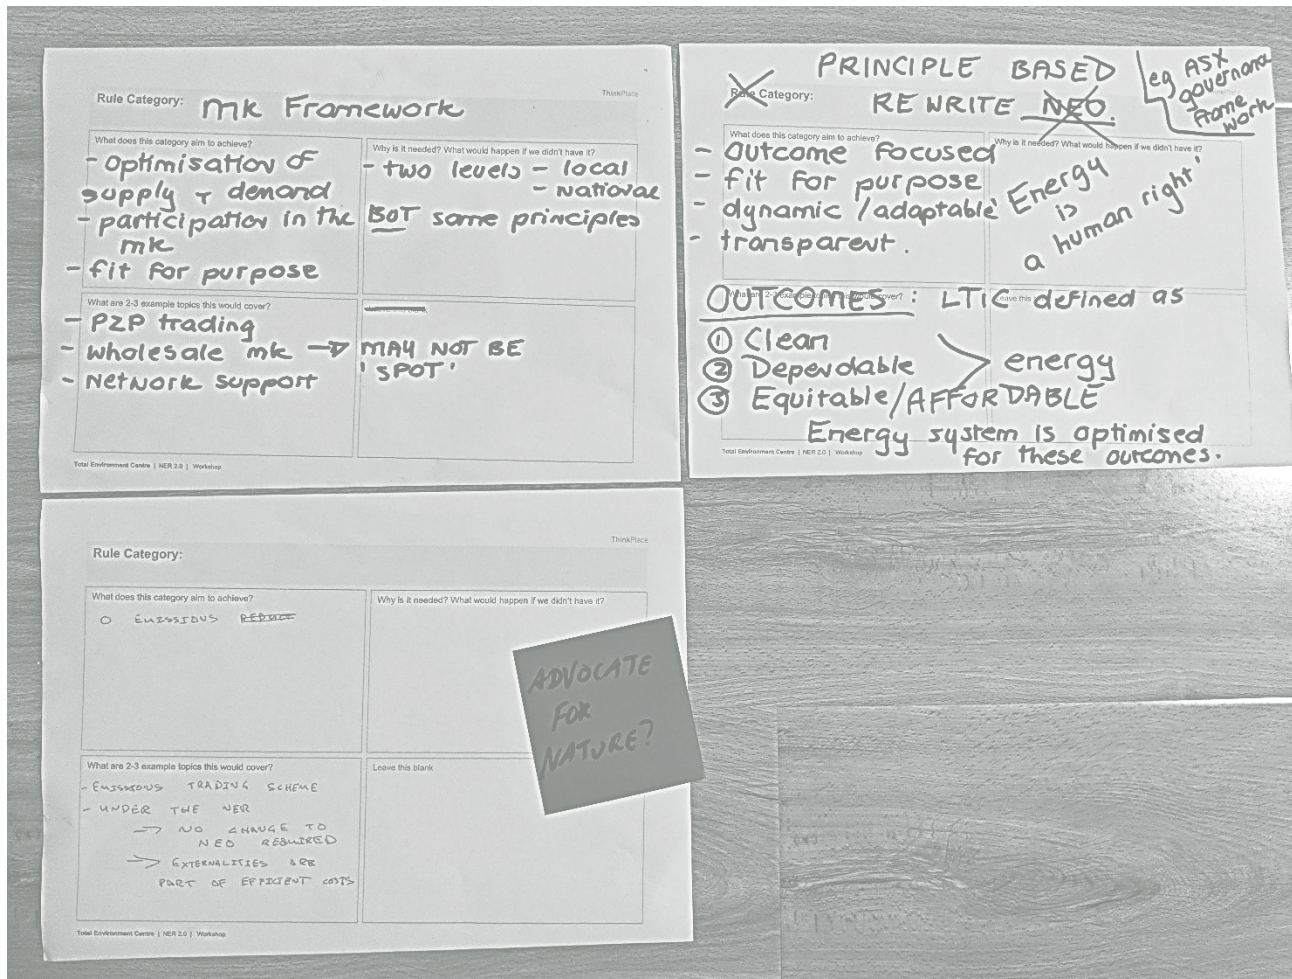 ThinkPlace
Rule Category: mk Framework
What does this category aim to achieve?
- Optimisation of
supply + demand
- participation in the
mk
- fit for purpose
Why is it needed? What would happen if we didn't have it?
- two levels - local
- national
BOT same principles
What are 2-3 example topics this would cover?
- P2P trading
- wholesale mk → MAY NOT BE
'SPOT'
- Network support
Total Environment Centre | NER 2.0 | Workshop
PRINCIPLE BASED
Rule Category:
REWRITE NEO.
eg ASX
governance
frame
work
What does this category aim to achieve?
- outcome focused
- fit for purpose
- dynamic /adaptable
- transparent.
Why is it needed? What would happen if we didn't have it?
'Energy
is
a human right'
What are 2-3 example topics this would cover?
Leave this
OUTCOMES: LTIC defined as
① Clean
② Dependable
③ Equitable/AFFORDABLE
energy
Energy system is optimised
for these outcomes.
Total Environment Centre | NER 2.0 | Workshop
ThinkPlace
Rule Category:
What does this category aim to achieve?
O EMISSIONS REDUCT
Why is it needed? What would happen if we didn't have it?
ADVOCATE
FOR
NATURE?
What are 2-3 example topics this would cover?
- EMISSIONS TRADING SCHEME
- UNDER THE NER
→ NO CHANGE TO
NEO REQUIRED
→ EXTERNALITIES ARE
PART OF EFFICIENT COSTS
Leave this blank
Total Environment Centre | NER 2.0 | Workshop